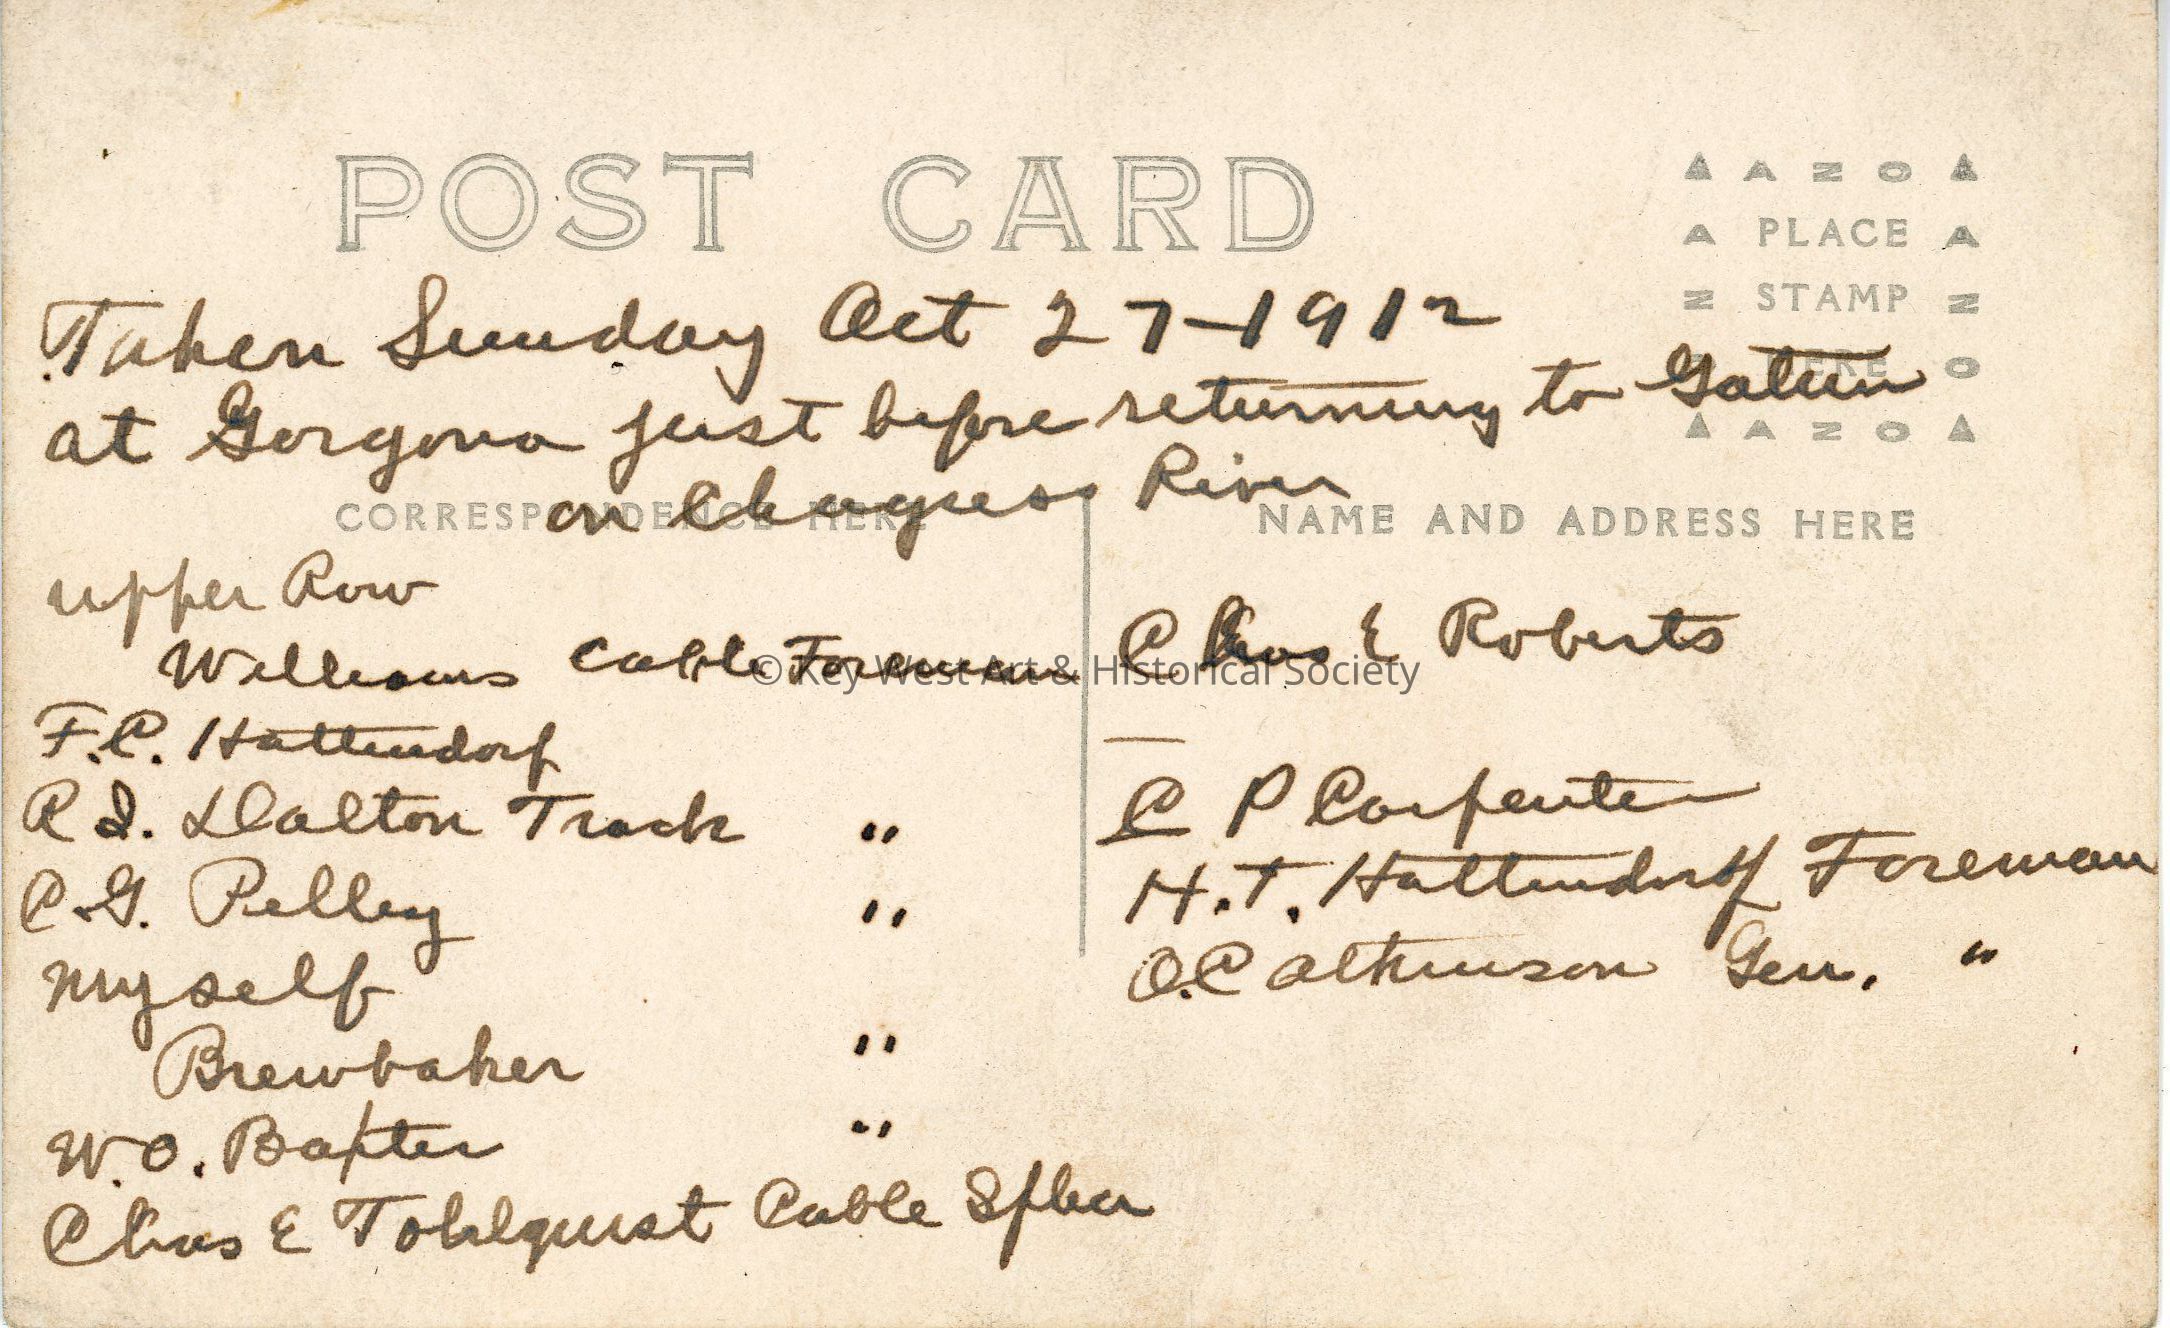 POST CARD
AZO
PLACE
STAMP
HERE
AZO
Taken Sunday Oct 27-1912
at Gorgona just before returning to Gatun
on Chagress River
CORRESPONDENCE HERE
NAME AND ADDRESS HERE
Upper Row
Williams Cable Foreman
F.C. Hattendorf
R I. Dalton Track "
C.G. Pelley "
Myself
Brewbaker "
W.O. Baxter "
Chas E Tohlquist Cable Splicer
Chas E Roberts
C P Carpenter
H.T. Hattendorf Foreman
O.C Atkinson Gen. "
© Key West Art & Historical Society